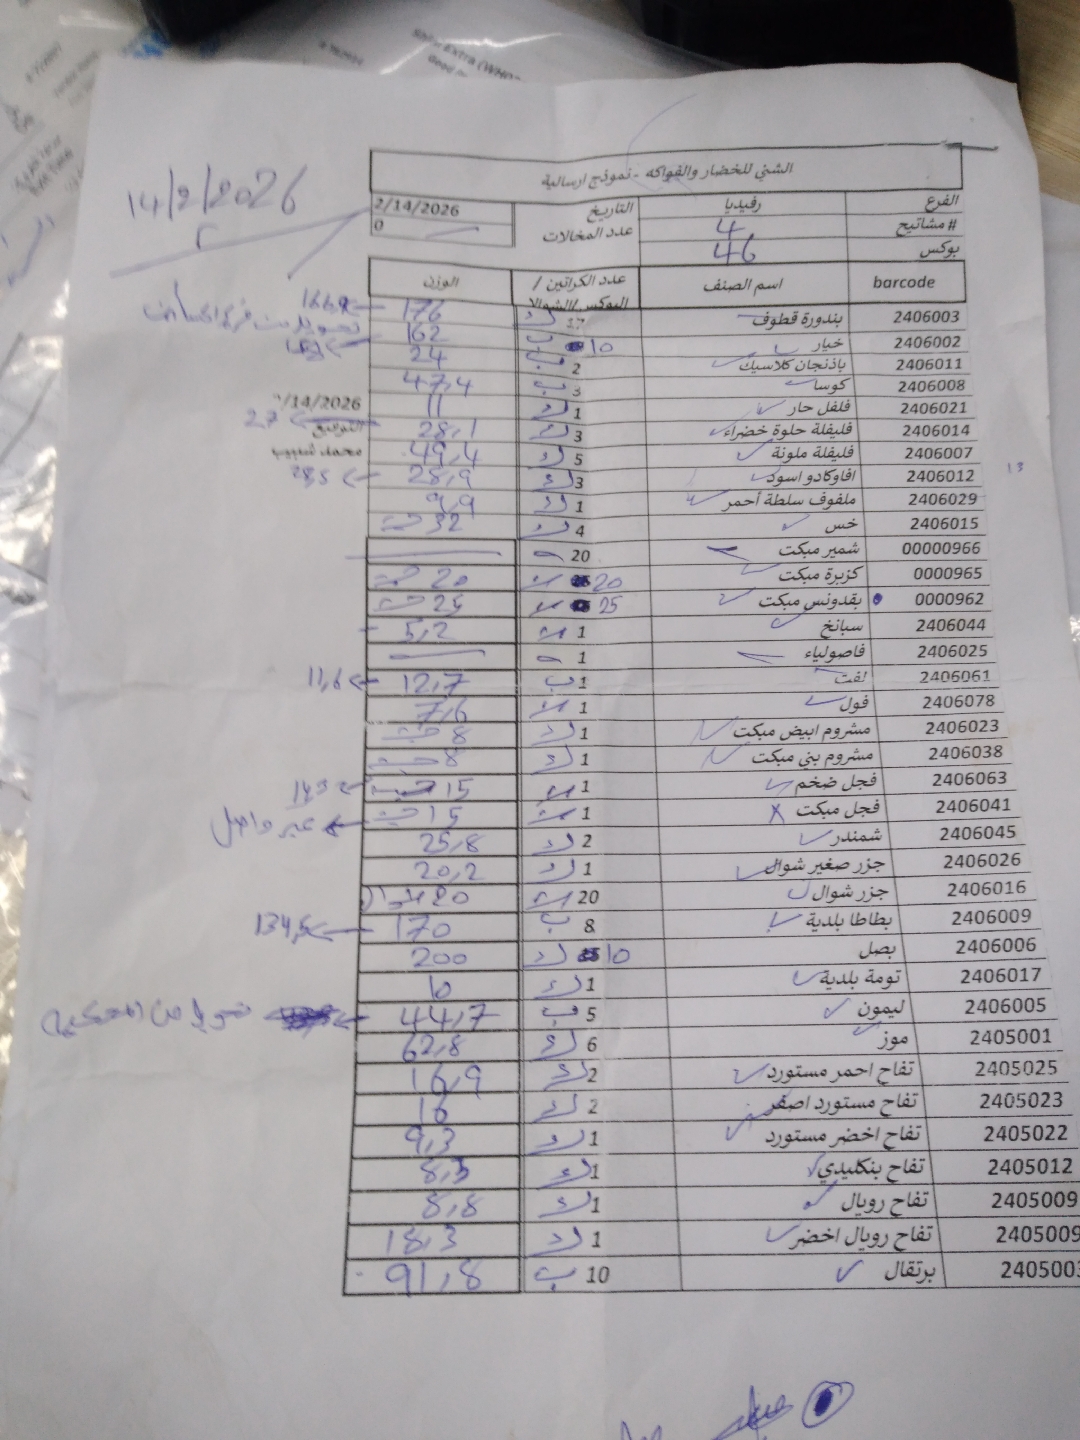 14/2/2026
الشني للخضار والفواكه - نموذج ارسالية
الفرع رفيديا التاريخ 2/14/2026
# مشاتيح 4 عدد المخالات 0
بوكس 46
barcode اسم الصنف عدد الكراتين / البوكس/الشوالا الوزن
2406003 بندورة قطوف 17 ك 176
2406002 خيار 10 ب 162
2406011 باذنجان كلاسيك 2 ب 24
2406008 كوسا 3 ب 47,4
2406021 فلفل حار 1 ك 11 /14/2026
2406014 فليفلة حلوة خضراء 3 ك 28,1 27 التوقيع
2406007 فليفلة ملونة 5 ك 49,4 محمد شبيب
2406012 افاوكادو اسود 3 ك 28,9 28,5
2406029 ملفوف سلطة أحمر 1 ك 9,9
2406015 خس 4 ك 32 حبة
00000966 شمير مبكت 20
0000965 كزبرة مبكت 20 20 حبة
0000962 بقدونس مبكت 25 25 حبة
2406044 سبانخ 1 5,2
2406025 فاصولياء 1
2406061 لفت 1 ب 12,7 11,6
2406078 فول 1 7,6
2406023 مشروم ابيض مبكت 1 ك 8 حبة
2406038 مشروم بني مبكت 1 ك 8 حبة
2406063 فجل ضخم 1 15
2406041 فجل مبكت 1 15 حبة غير واصل
2406045 شمندر 2 ك 25,8
2406026 جزر صغير شوال 1 ك 20,2
2406016 جزر شوال 20 20 شوال
2406009 بطاطا بلدية 8 ب 170 134,5
2406006 بصل 10 ك 200
2406017 تومة بلدية 1 ك 10
2406005 ليمون 5 ب 44,7
2405001 موز 6 ك 62,8
2405025 تفاح احمر مستورد 2 ك 16,9
2405023 تفاح مستورد اصفر 2 ك 16
2405022 تفاح اخضر مستورد 1 ك 9,3
2405012 تفاح بنكليدي 1 ك 8,3
2405009 تفاح رويال 1 ك 8,8
2405009 تفاح رويال اخضر 1 ك 18,3
2405003 برتقال 10 ب 91,8